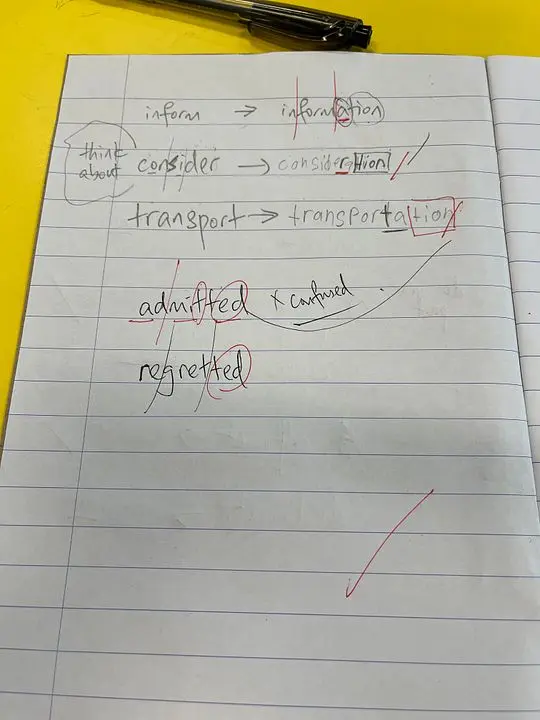 inform → information
think about consider → consideration
transport → transportation
admitted x confused.
regretted